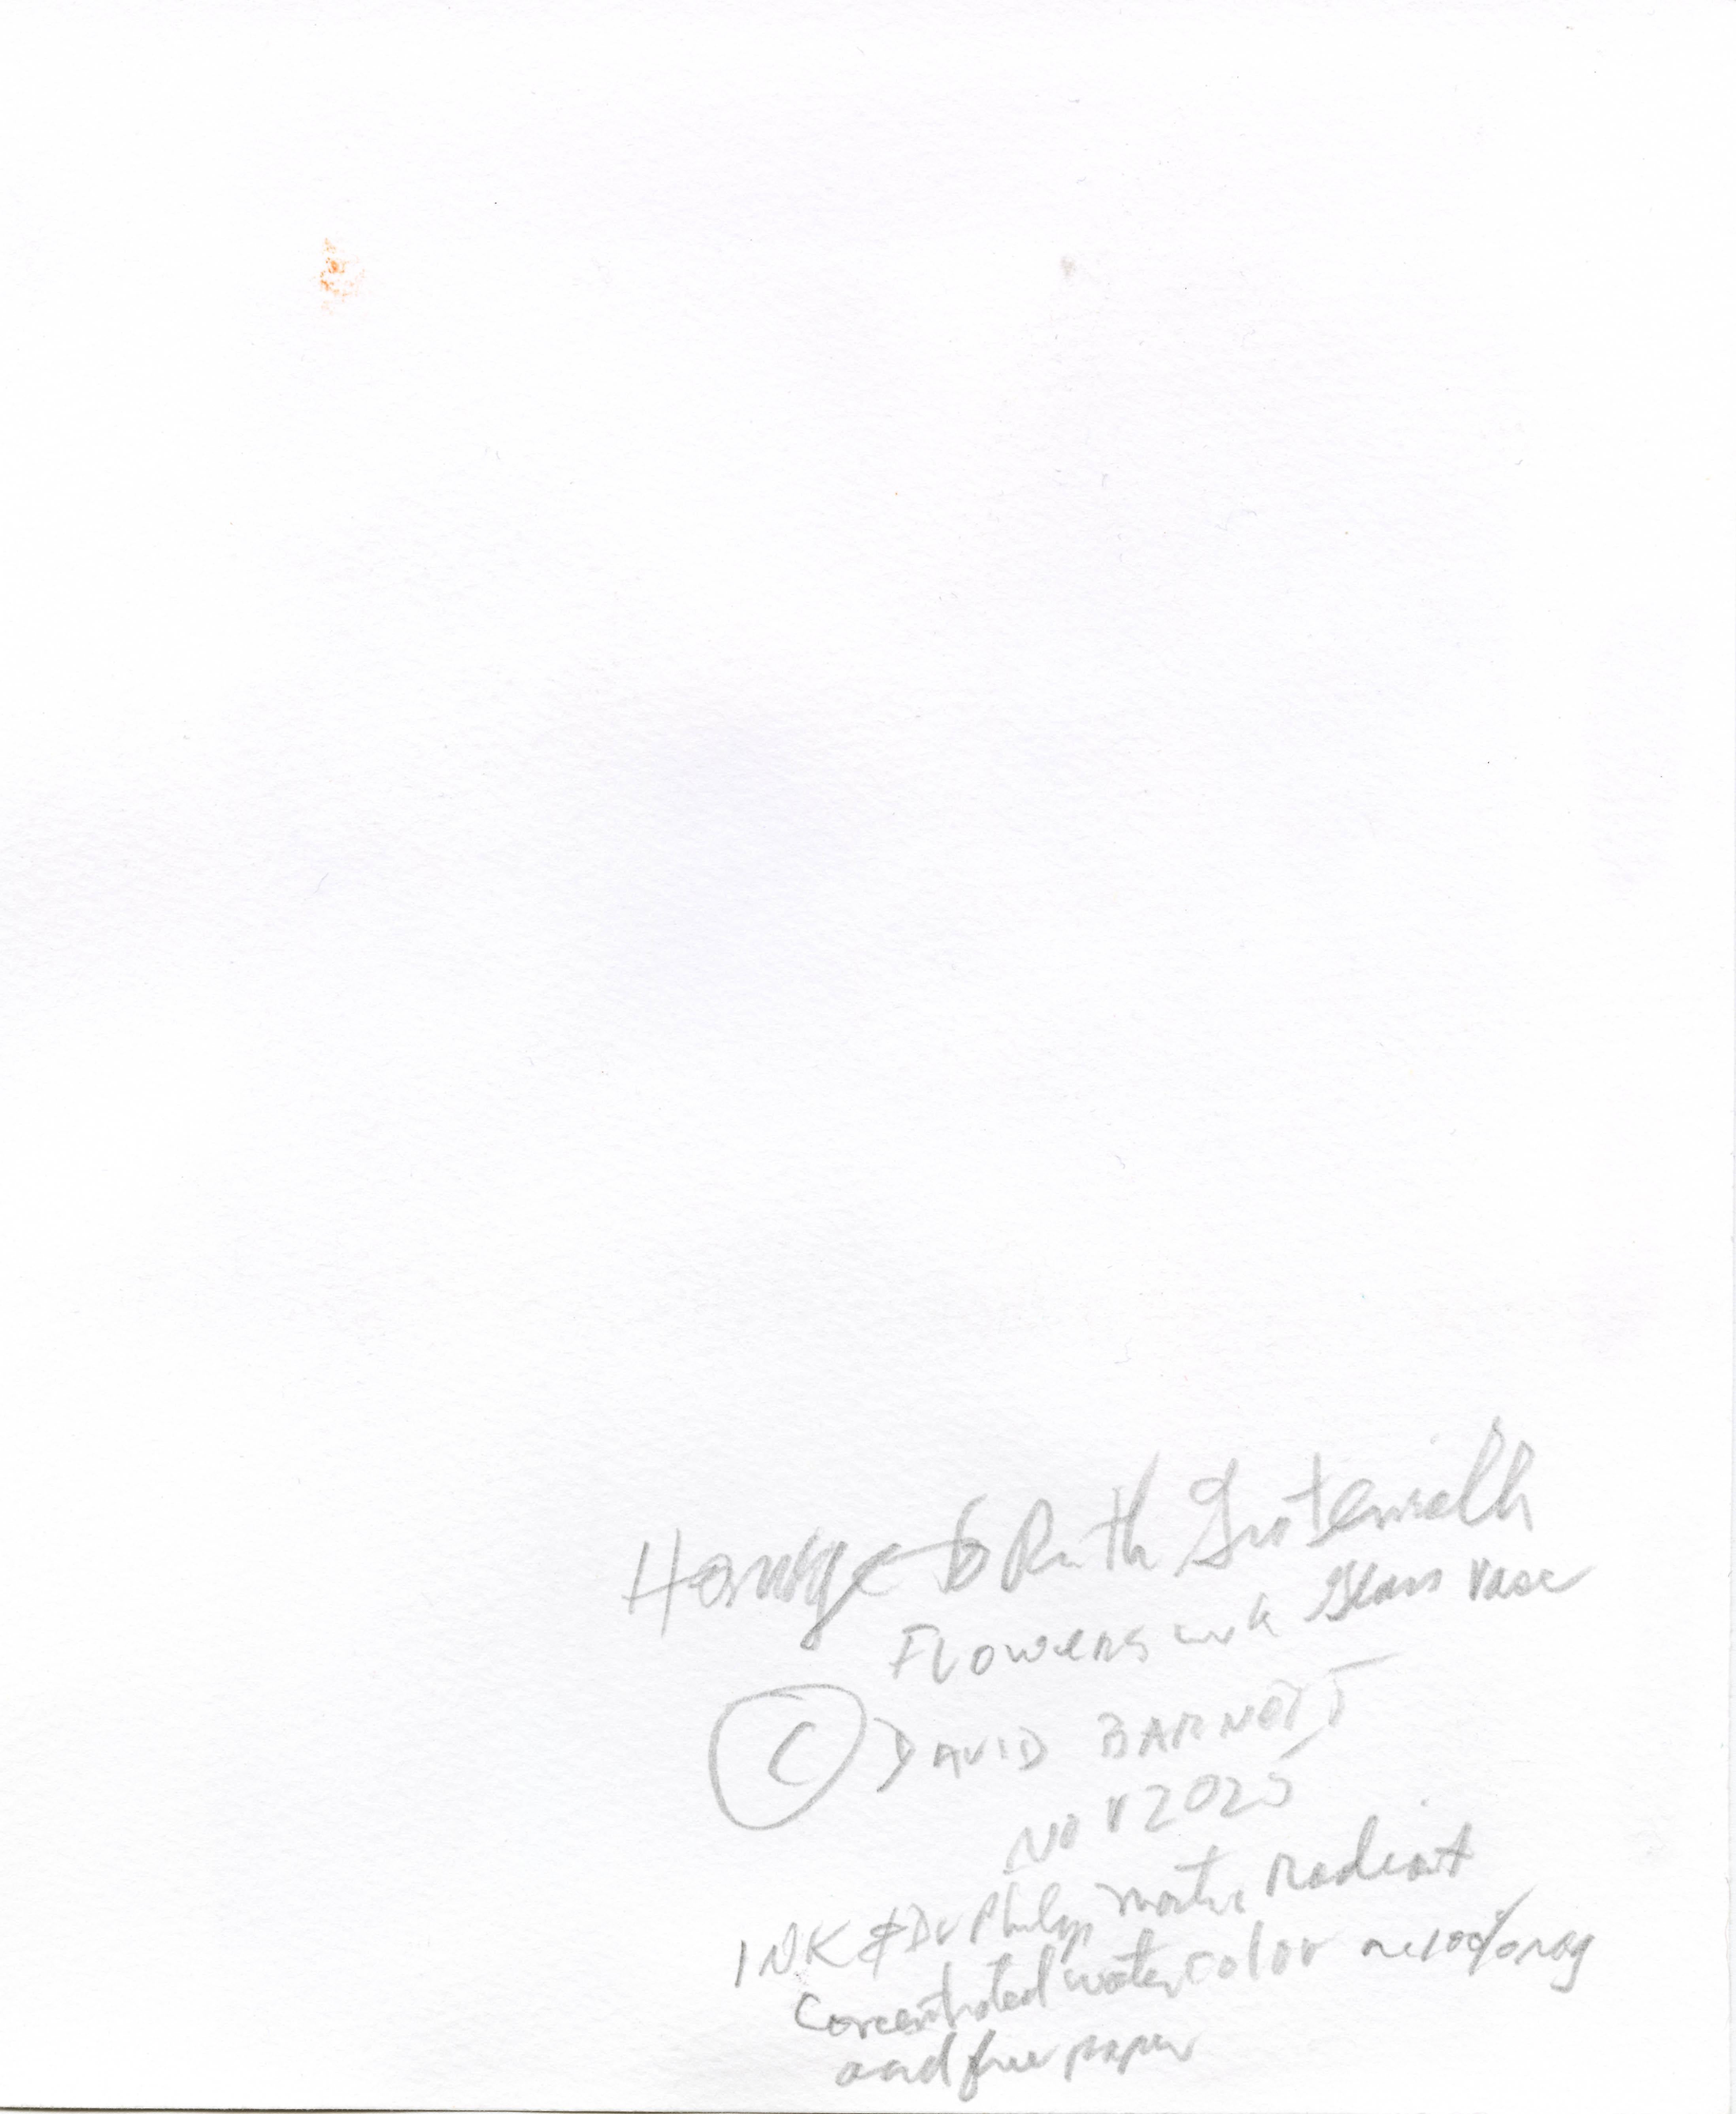 Homage to Ruth Grotenrath
Flowers in a Glass Vase
© DAVID BARNETT
NOV 2025
INK & Dr Philip Martin Radiant
Concentrated watercolor on 100% rag
acid free paper